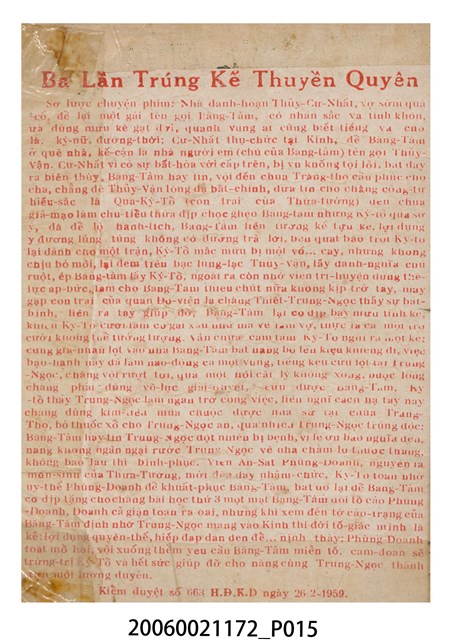 Ba Lần Trúng Kế Thuyền Quyên
Sơ lược chuyện phim: Nhà danh-hoạn Thủy-Cư-Nhất, vợ sớm qua
cố, để lại một gái tên gọi Băng-Tâm, có nhan sắc và tính khôn,
ưa dùng mưu kế gạt đời, quanh vùng ai cũng biết tiếng và cho
là kỳ-nữ đương-thời; Cư-Nhất thụ-chức tại Kinh, để Băng-Tâm
ở quê nhà, kế-cận là nhà người em (chú của Băng-tâm) tên gọi Thủy-
Vận. Cư-Nhất vì có sự bất-hòa với cấp trên, bị vu khống tội lỗi, bắt đày
ra biên thùy, Băng-Tâm hay tin, vội đến chùa Trăng-thọ cầu phúc cho
cha, chẳng dè Thủy-Vận lòng dạ bất-chính, đưa tin cho chàng công-tử
hiếu-sắc là Quá-Kỳ-Tổ (con trai của Thừa-tướng) đến chùa
giả-mạo làm chú-tiểu thừa dịp chọc ghẹo Băng-tâm nhưng Kỳ-Tổ quá sơ
ý, đã để lộ hành-tích, Băng-Tâm liền tương kế tựu kế, lợi dụng
lại đành cho một trận, Kỳ-Tổ mắc mưu bị một vố... cay, nhưng không
chịu bỏ mồi, lại đem tiền bạc lung-lạc Thủy-Vận, lấy danh-nghĩa chú
ruột, ép Băng-tâm lấy Kỳ-Tổ, ngoài ra còn nhờ viên tri-huyện dùng thế-
lực áp-bức, làm cho Băng-Tâm thiếu chút nữa không kịp trở tay, may
gặp con trai của quan Đô-viện là chàng Thiết-Trung-Ngọc thấy sự bất-
bình, liền ra tay giúp đỡ; Băng-Tâm lại có dịp bày mưu tính kế,
khiến Kỳ-Tổ cưới lầm cô gái xấu như ma về làm vợ, thực là cả một trò
cười không thể tưởng tượng. Vẫn chưa cam tâm Kỳ-Tổ nghĩ ra một kế;
bạo-hành này đã làm náo-động cả một vùng, tiếng kêu cứu lọt tai Trung-
Ngọc, chàng vội rượt tới, qua một hồi cãi lý không xong, buộc lòng
chàng phải dùng võ-lực giải-quyết, cứu được Băng-Tâm, Kỳ-
tổ thấy Trung-Ngọc làm ngăn trở công việc, liền nghĩ cách hạ tay này
chàng dùng kim-tiền mua chuộc được nhà sư tại chùa Trăng-
Thọ, bỏ thuốc xổ cho Trung-Ngọc ăn, quả nhiên Trung-Ngọc trúng độc;
Băng-Tâm hay tin Trung-Ngọc đột nhiên bị bệnh, vì lẽ ơn báo nghĩa đền,
nàng không ngần ngại rước Trung-Ngọc về nhà chăm lo thuốc thang,
không bao lâu thì bình-phục. Viên Án-Sát Phùng-Doanh, nguyên là
môn-sinh của Thừa-Tướng, mới đến đây nhậm-chức, Kỳ-Tổ toan nhờ
uy-thế Phùng-Doanh để khuất-phục Băng-Tâm, bất ưu lại để Băng-Tâm
có dịp tặng cho chàng bài học thứ 3 một mặt Băng-Tâm nói tố cáo Phùng
-Doanh, Doanh cả giận toan ra oai, nhưng khi xem đến tờ cáo-trạng của
Băng-Tâm định nhờ Trung-Ngọc mang vào Kinh thì đới tố-giác mình là
kẻ: lợi dụng quyền-thế, hiếp đáp dân đen để... nịnh thầy; Phùng-Doanh
toát mồ hôi, vội xuống thềm yêu cầu Băng-Tâm miễn tố, cam-đoan sẽ
trừng-trị Kỳ-Tổ và hết sức giúp đỡ cho nàng cùng Trung-Ngọc thành
một lương duyên.
Kiểm duyệt số 663 H.Đ.K.D ngày 26-2-1959.
20060021172_P015